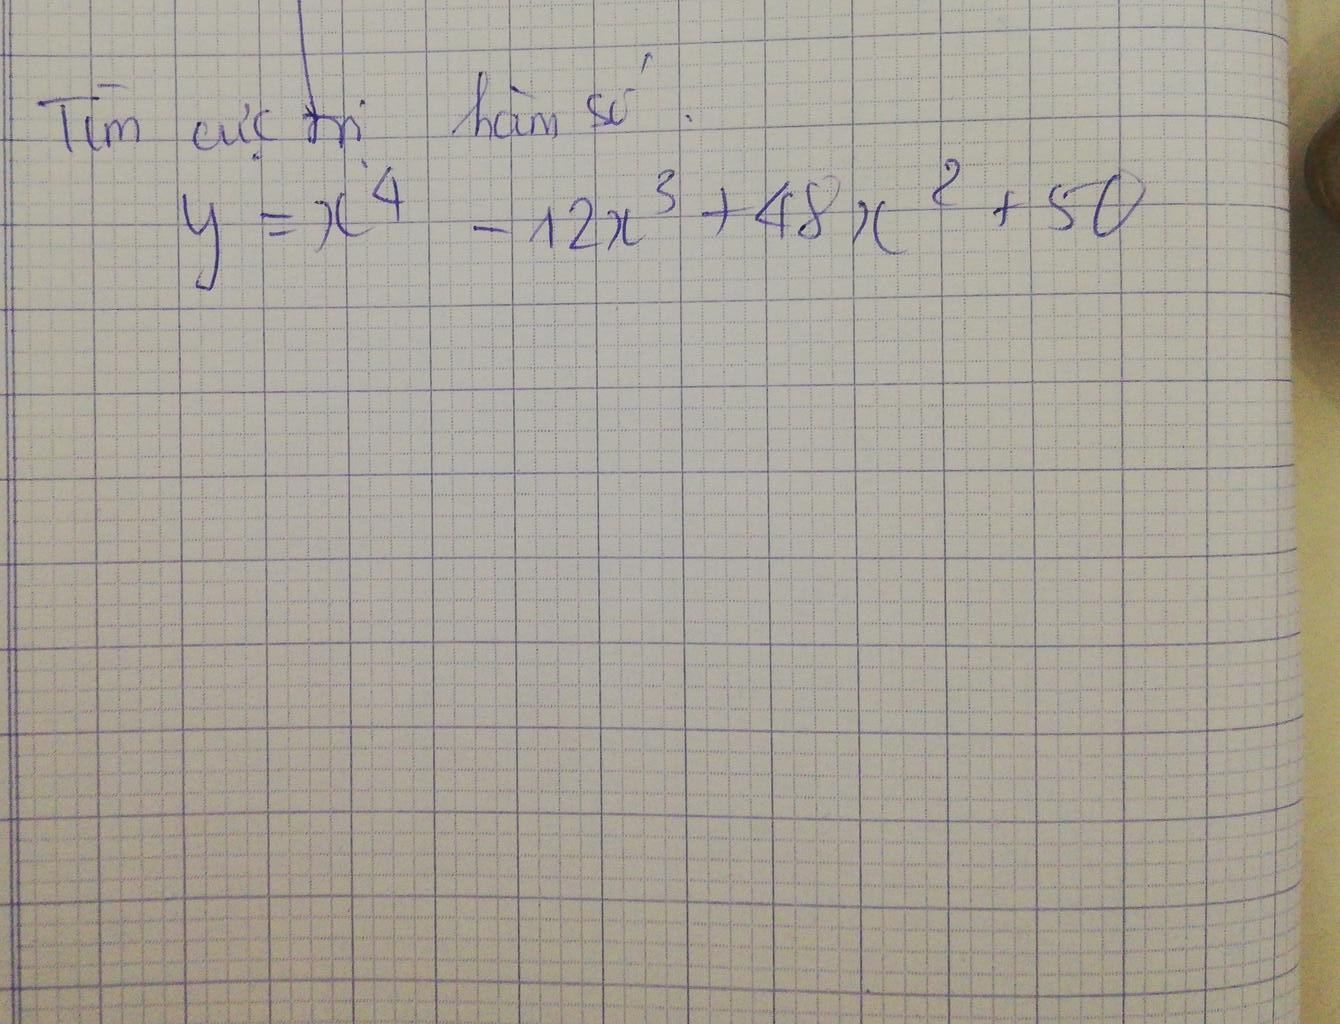 Tìm cực trị hàm số.
y = x⁴ - 12x³ + 48x² + 50